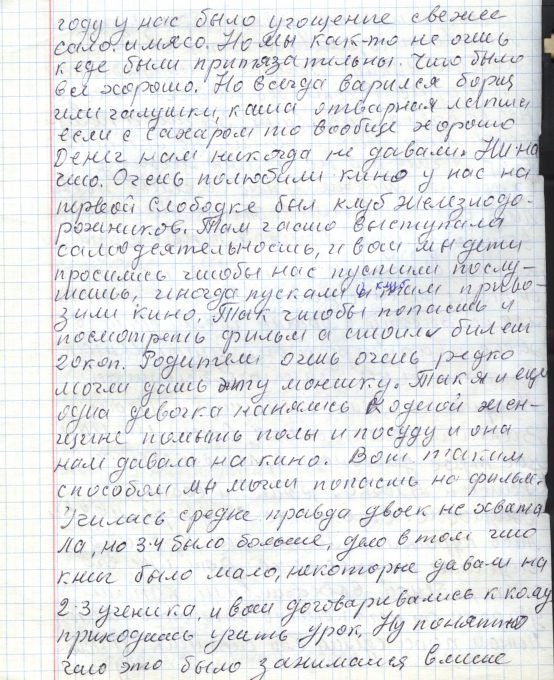 году у нас было угощение свежее
сало и мясо. Но мы как-то не очень
к еде были притязательны. Что было
все хорошо. Но всегда варился борщ
или галушки, каша отварная лапша
если с сахаром то вообще хорошо
Денег нам никогда не давали. Ни на
что. Очень полюбили кино у нас на
первой Слободке был клуб железнодо-
рожников. Там часто выступала
самодеятельность, и вот мы дети
просились чтобы нас пустили послу-
шать, иногда пускали в клуб там приво-
зили кино. Так чтобы попасть и
посмотреть фильм а стоил билет
20 коп. Родители очень очень редко
могли дать эту монетку. Так я и еще
одна девочка нанялись к одной жен-
щине помыть полы и посуду и она
нам давала на кино. Вот таким
способом мы могли попасть на фильм.
Училась средне правда двоек не хвата
ла, но 3-4 было больше, дело в том что
книг было мало, некоторые давали на
2-3 ученика, и вот договаривались к кому
приходить учить урок. Ну понятно
что это было занимался вместе